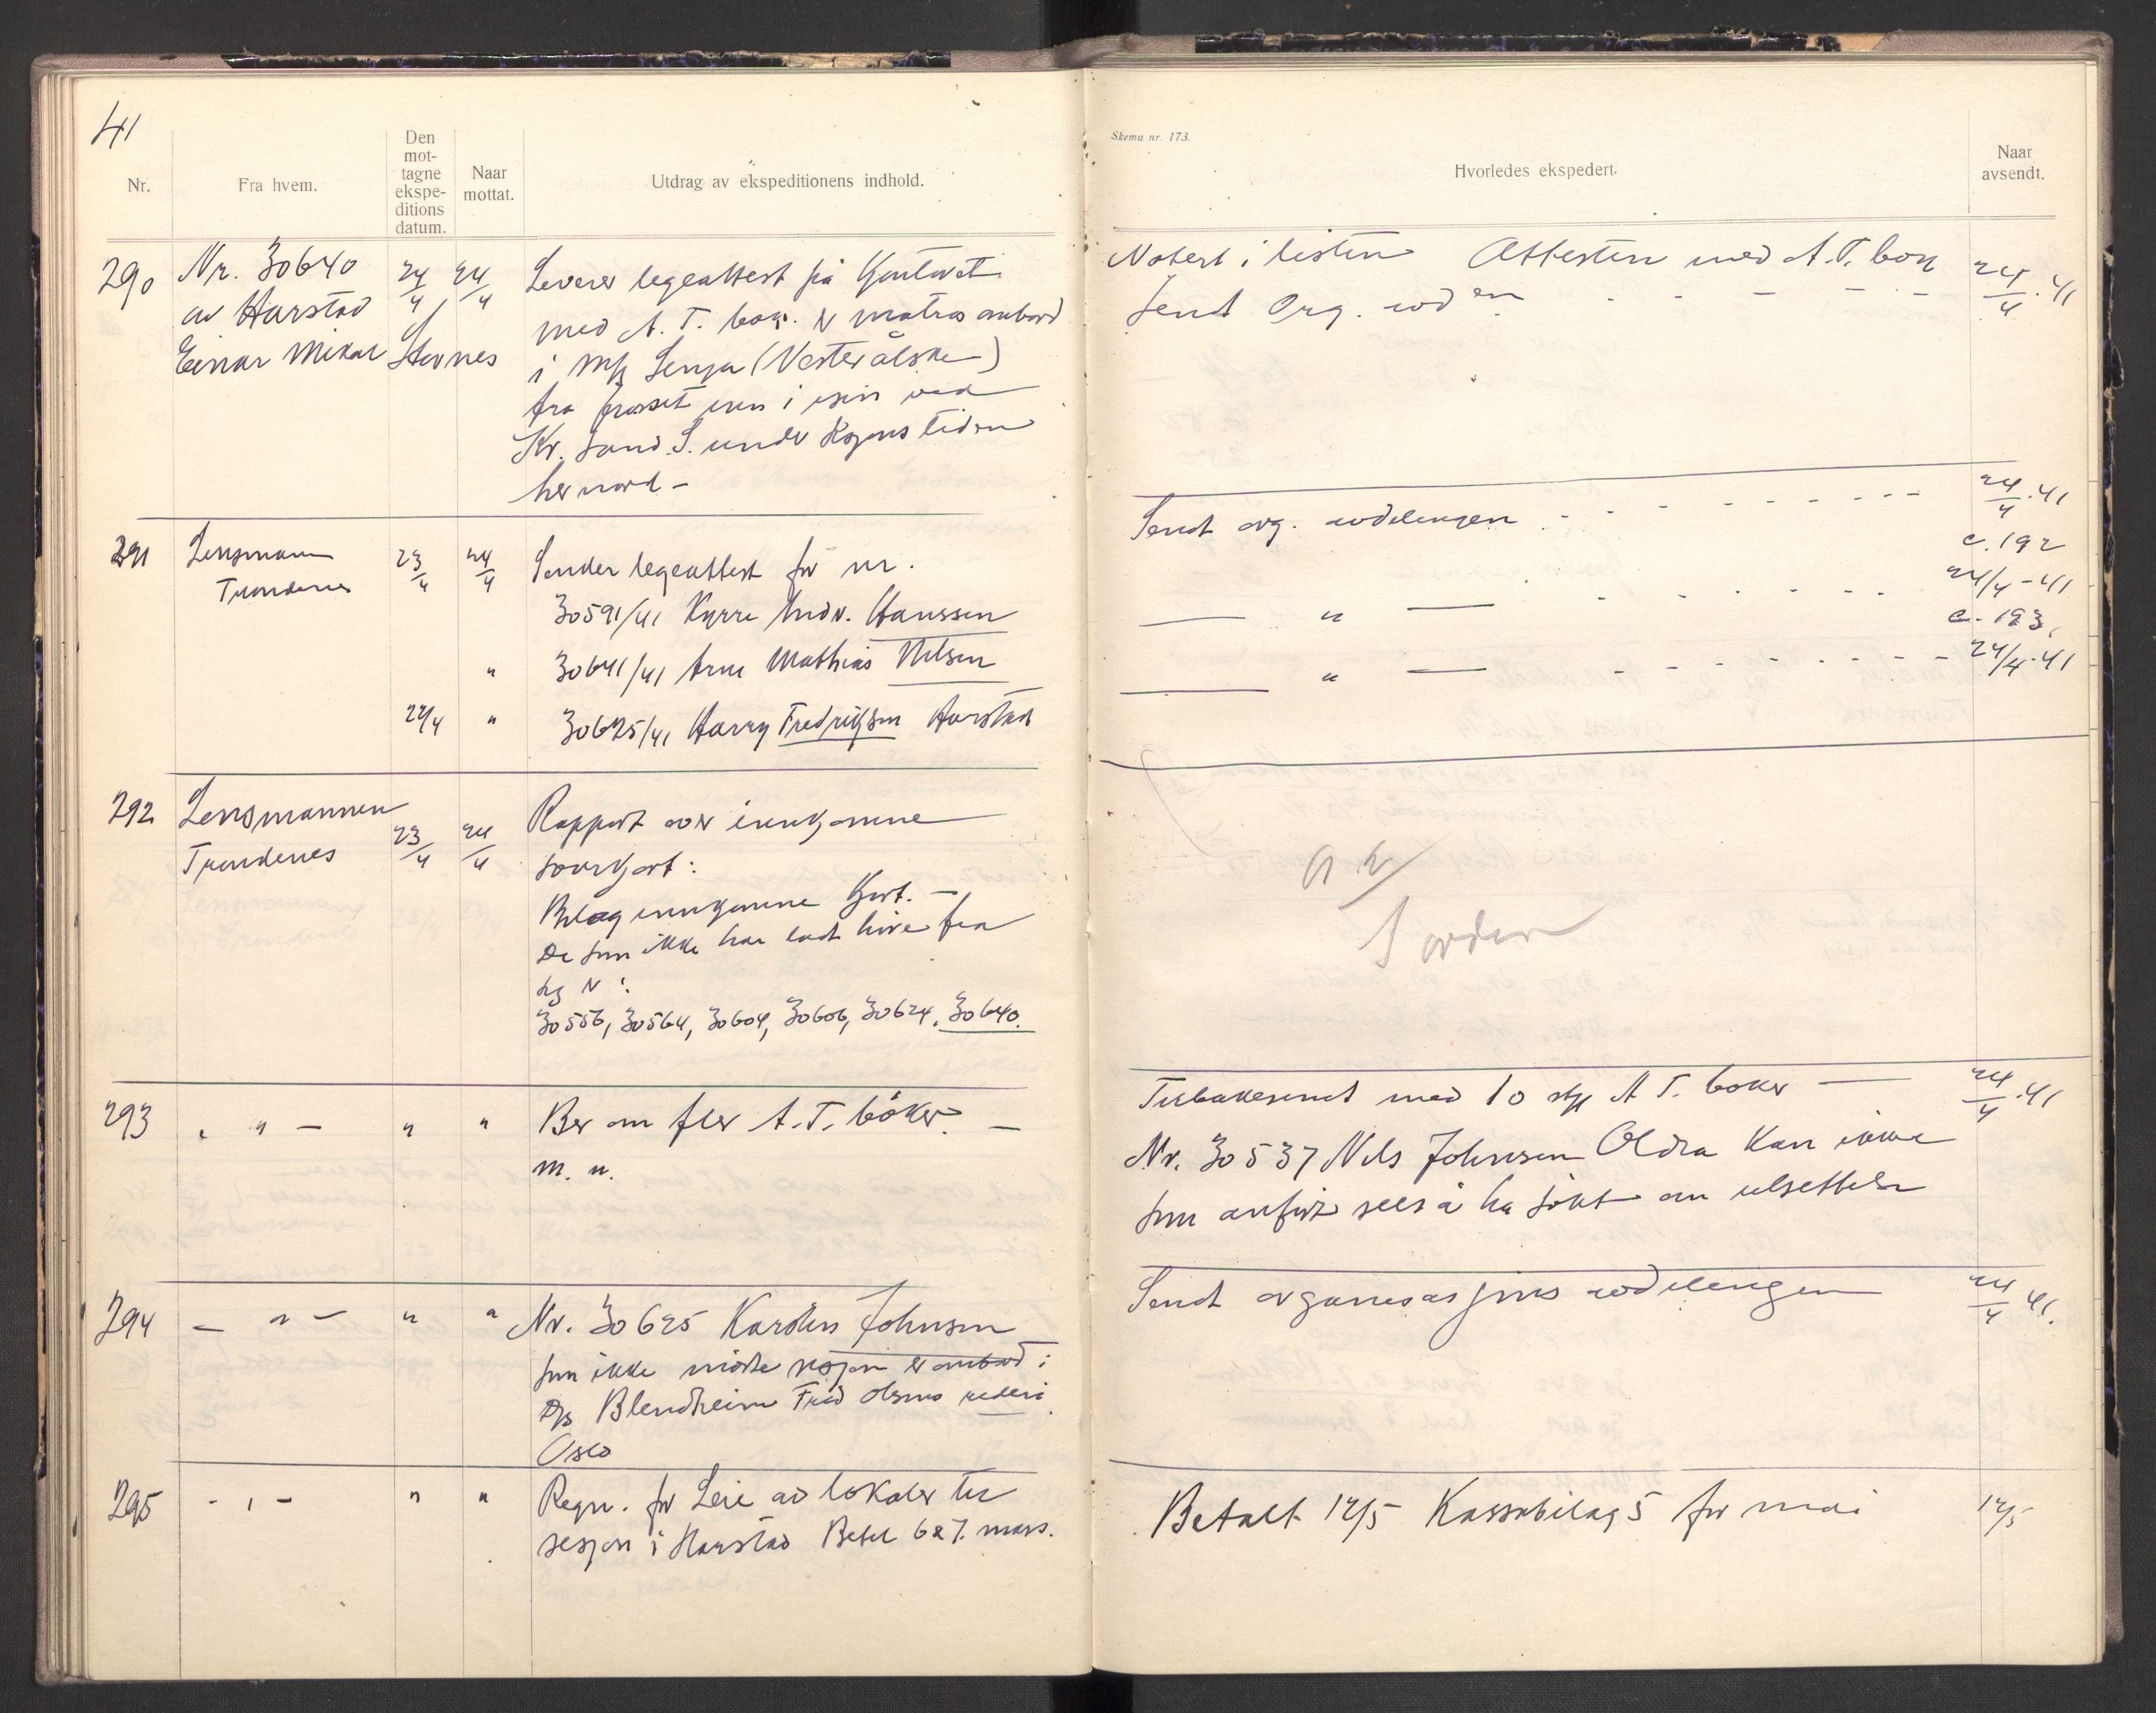 41
Skema nr. 173.
Nr.
Fra hvem.
Den mot-tagne ekspe-ditions datum.
Naar mottat.
Utdrag av ekspeditionens indhold.
Hvorledes ekspedert.
Naar avsendt.
290 Nr. 30640 24/4 24/4 Leverer legeattest på Kontoret
av Harstad med A. T. bok. er matros ombord
Einar Mikal Stennes i M/k Senja (Vesterålske)
fra frosset inn i isen ved
Kr. sand S. under Sesjonstiden
her nord -
Notert i listen Attesten med A. T. bok 24/4.41
Sendt Org. avd en - - - - -
291 Lensmann 23/4 24/4 Sender legeattest for nr.
Trondenes
30591/41 Kyrre Hanssen
" 30641/41 Arne Mathias Nilsen
22/4 " 30625/41 Harry Fredriksen Harstad
Sendt org. avdelingen - - - - - - - 24/4.41
c. 192
— " — - - - - - 24/4-41
c. 193.
— " — - - - - - - - 24/4-41
292 Lensmannen 23/4 24/4 Rapport over innkomne
Trondenes svarkort:
Bilag innkomne Kort. -
De som ikke har latt høre fra
sig er:
30556, 30564, 30604, 30606, 30624, 30640.
I orden
293 " " — " " Ber om fler A. T. bøker. —
m. u.
Tilbakesendt med 10 stk A T. bøker — 24/4.41
Nr. 30537 Nils Johnsen Oldra Kan ikke
som anført sees å ha søkt om utsettelse
294 — " — " " Nr. 30625 Karsten Johnsen
som ikke møtte sesjon er ombord i
D/s Blendheim Fred Olsens rederi
Oslo
Sendt organisasjons avdelingen 24/4 41.
295 - " - " " Regn. for Leie av lokaler til
sesjon i Harstad Betel 6 & 7. mars.
Betalt 12/5 Kassabilag 5 for mai 12/5